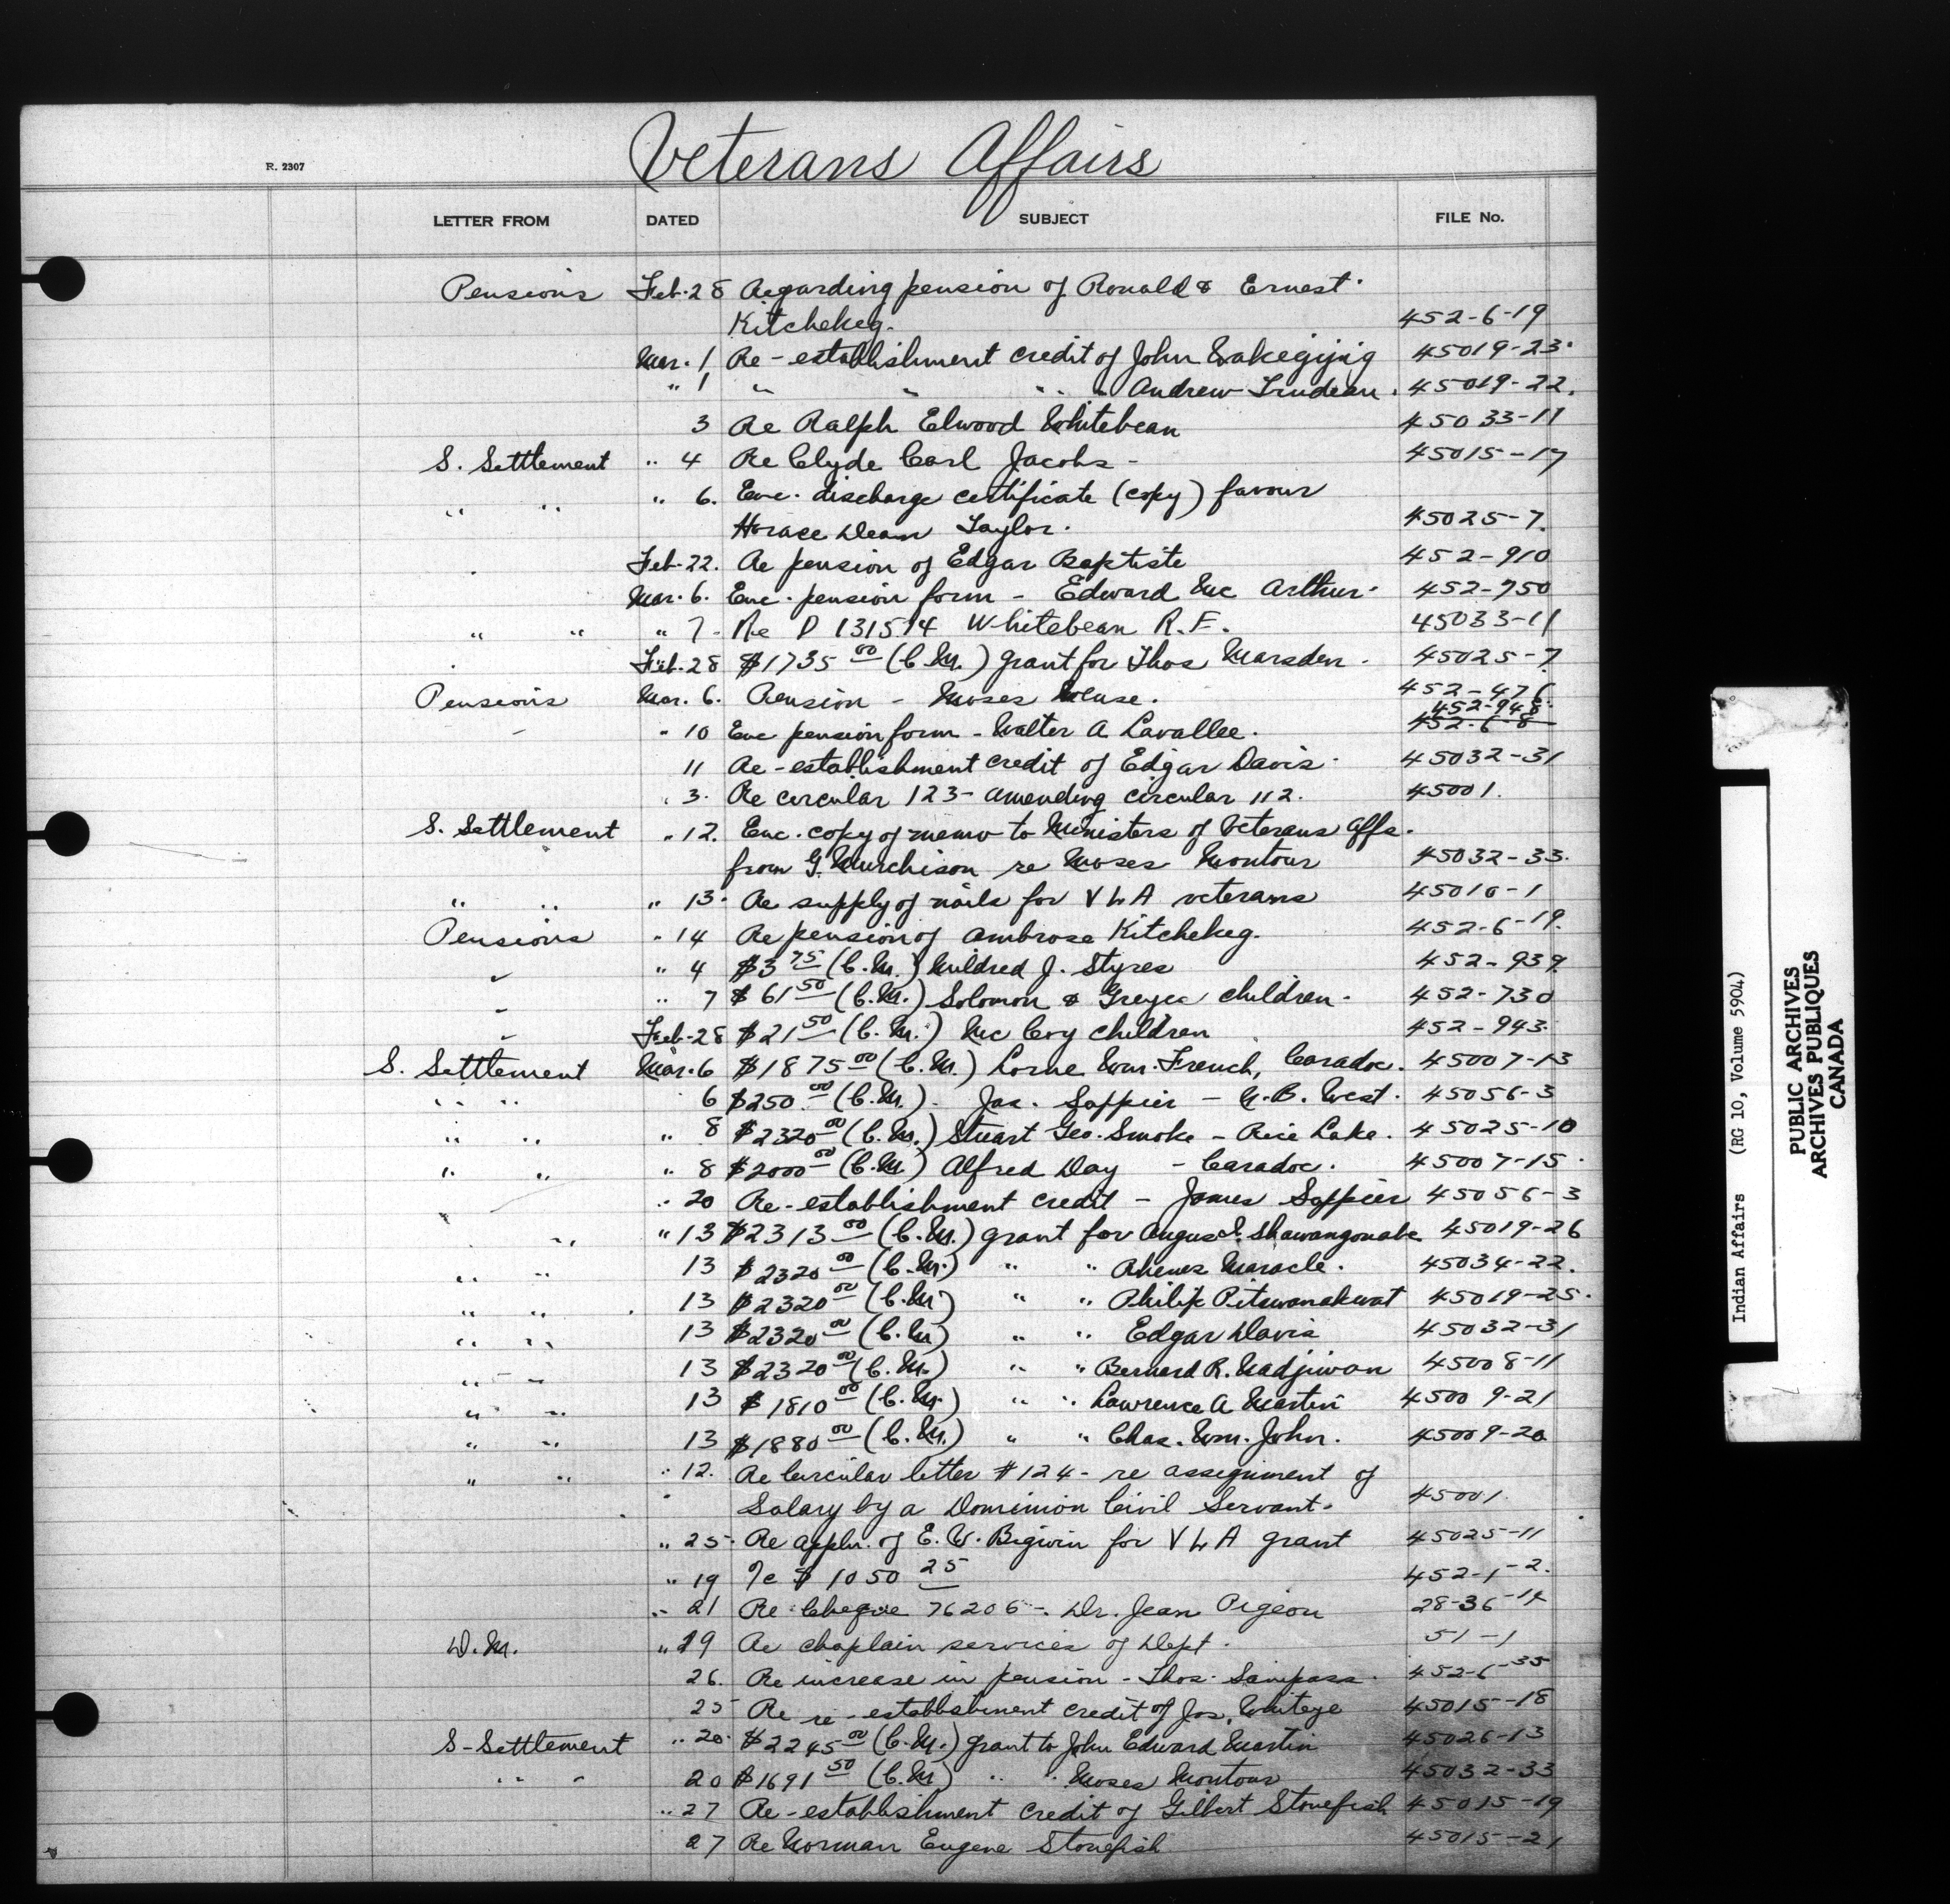 Veterans Affairs
R. 2307
LETTER FROM DATED SUBJECT FILE No.
Pensions Feb. 28 Regarding pension of Ronald & Ernest
Kitchekeg. 452-6-19
Mar. 1 Re-establishment credit of John Wakegijig 45019-23
" 1 " " " " Andrew Trudeau. 45019-22.
3 Re Ralph Elwood Whitebean 45033-11
S. Settlement " 4 Re Clyde Carl Jacobs - 45015-17
" " " 6. Enc. discharge certificate (copy) favour
Horace Dean Taylor. 45025-7.
Feb-22. Re pension of Edgar Baptiste 452-910
Mar. 6. Enc. pension form - Edward Mc Arthur. 452-750
" " " 7- Re D 131514 Whitebean R.F. 45033-11
Feb. 28 $1735 00 (C.M.) grant for Thos Marsden. 45025-7
Pensions Mar. 6. Pension - Moses Meuse. 452-476
452-948
" 10 Enc pension form - Walter A Lavallee. 452-6-8
11 Re-establishment credit of Edgar Davis. 45032-31
" 3. Re circular 123- amending circular 112. 45001.
S. Settlement " 12. Enc. copy of memo to Ministers of Veterans Affs.
from G. Murchison re Moses Montour 45032-33.
" " " 13. Re supply of nails for V L A veterans 45010-1
Pensions " 14 Re pension of Ambrose Kitchekeg. 452-6-19.
" " 4 $3 75 (C.M.) Mildred J. Styres 452-939
" " 7 $61 50 (C.M.) Solomon & children. 452-730
" Feb-28 $21 50 (C.M.) Mc Coy children 452-943.
S. Settlement Mar. 6 $1875 00 (C.M.) Lorne Wm. French, Caradoc. 45007-13
" " 6 $250. 00 (C.M.). Jas. Sappier - N.B. West. 45056-3
" " " 8 $2320 00 (C.M.) Stuart Geo. Smoke - Rice Lake. 45025-10
" " " 8 $2000 00 (C.M.) Alfred Day - Caradoc. 45007-15
" 20 Re-establishment credit - James Sappier 45056-3
" " " 13 $2313 00 (C.M.) grant for Angus I. Shawangonabe 45019-26
" " 13 $2320 00 (C.M.) " " Maracle. 45034-22.
" " 13 $2320 00 (C.M.) " " Philip Pitwanakwat 45019-25.
" " 13 $2320 00 (C.M.) " " Edgar Davis 45032-31
" " 13 $2320 00 (C.M.) " " Bernard R. Nadjiwon 45008-11
" " 13 $1810 00 (C.M.) " " Lawrence A Martin 45009-21
" " 13 $1880 00 (C.M.) " " Chas. Wm. John. 45009-20
" " " 12. Re Circular letter # 124- re assignment of
Salary by a Dominion Civil Servant. 45001.
" 25. Re appln. of E. W. Bigwin for V L A grant 45025-11
" 19 $1050 25 452-1-2.
" 21 Re Cheque 76206 - Dr. Jean Pigeon 28-36-14
D.M. " 29 Re chaplain services of Dept. 51-1
26. Re increase in pension - Thos. Sampass. 452-6-35
25 Re re-establishment credit of Jos. Whiteye 45015-18
S-Settlement " 20. $2245 00 (C.M.) grant to John Edward Martin 45026-13
" " 20 $1691 50 (C.M.) " " Moses Montour 45032-33
" 27 Re-establishment credit of Gilbert Stonefish 45015-19
27 Re Norman Eugene Stonefish 45015-21
Indian Affairs (RG 10, Volume 5904)
PUBLIC ARCHIVES
ARCHIVES PUBLIQUES
CANADA